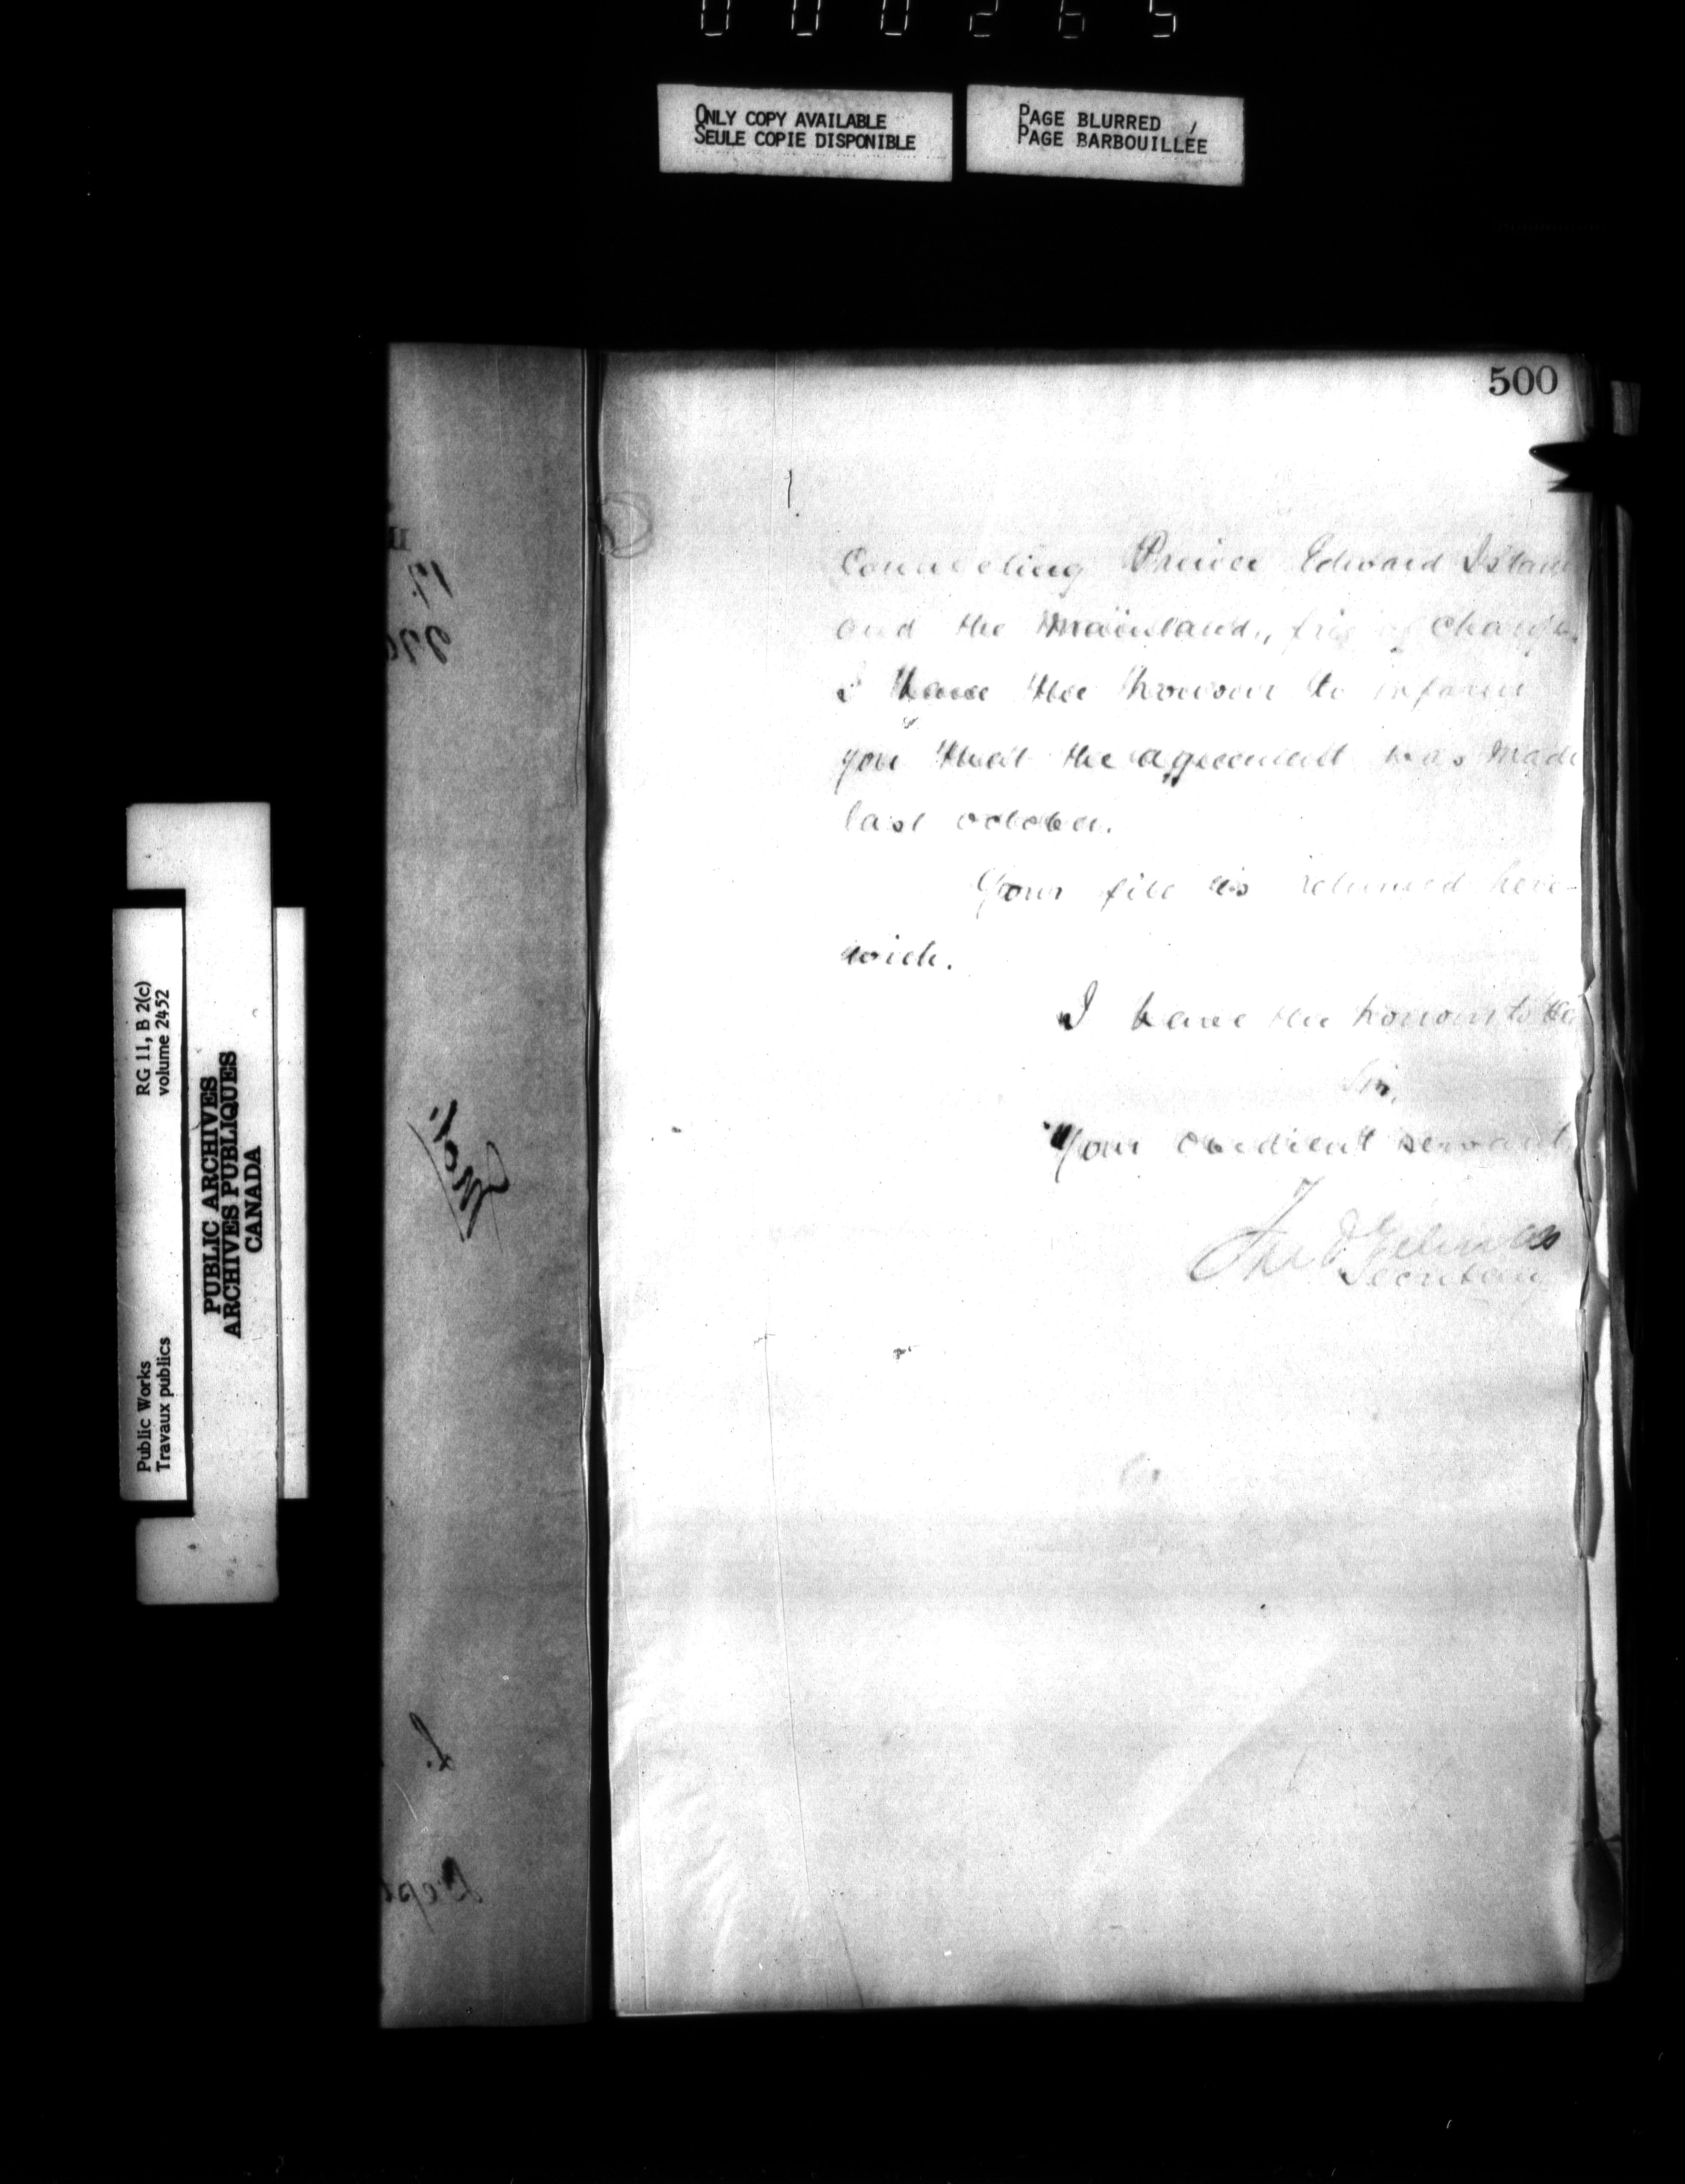 000265
ONLY COPY AVAILABLE
SEULE COPIE DISPONIBLE
PAGE BLURRED
PAGE BARBOUILLÉE
500
Connecting Prince Edward Islan
and the Mainland, free of charge.
I have the honour to inform
you that the agreement was made
last october.
Your file is returned here-
with.
I have the honour to be
Sir,
Your obedient servant
Secretary
Public Works
Travaux publics
RG 11, B 2(c)
volume 2452
PUBLIC ARCHIVES
ARCHIVES PUBLIQUES
CANADA